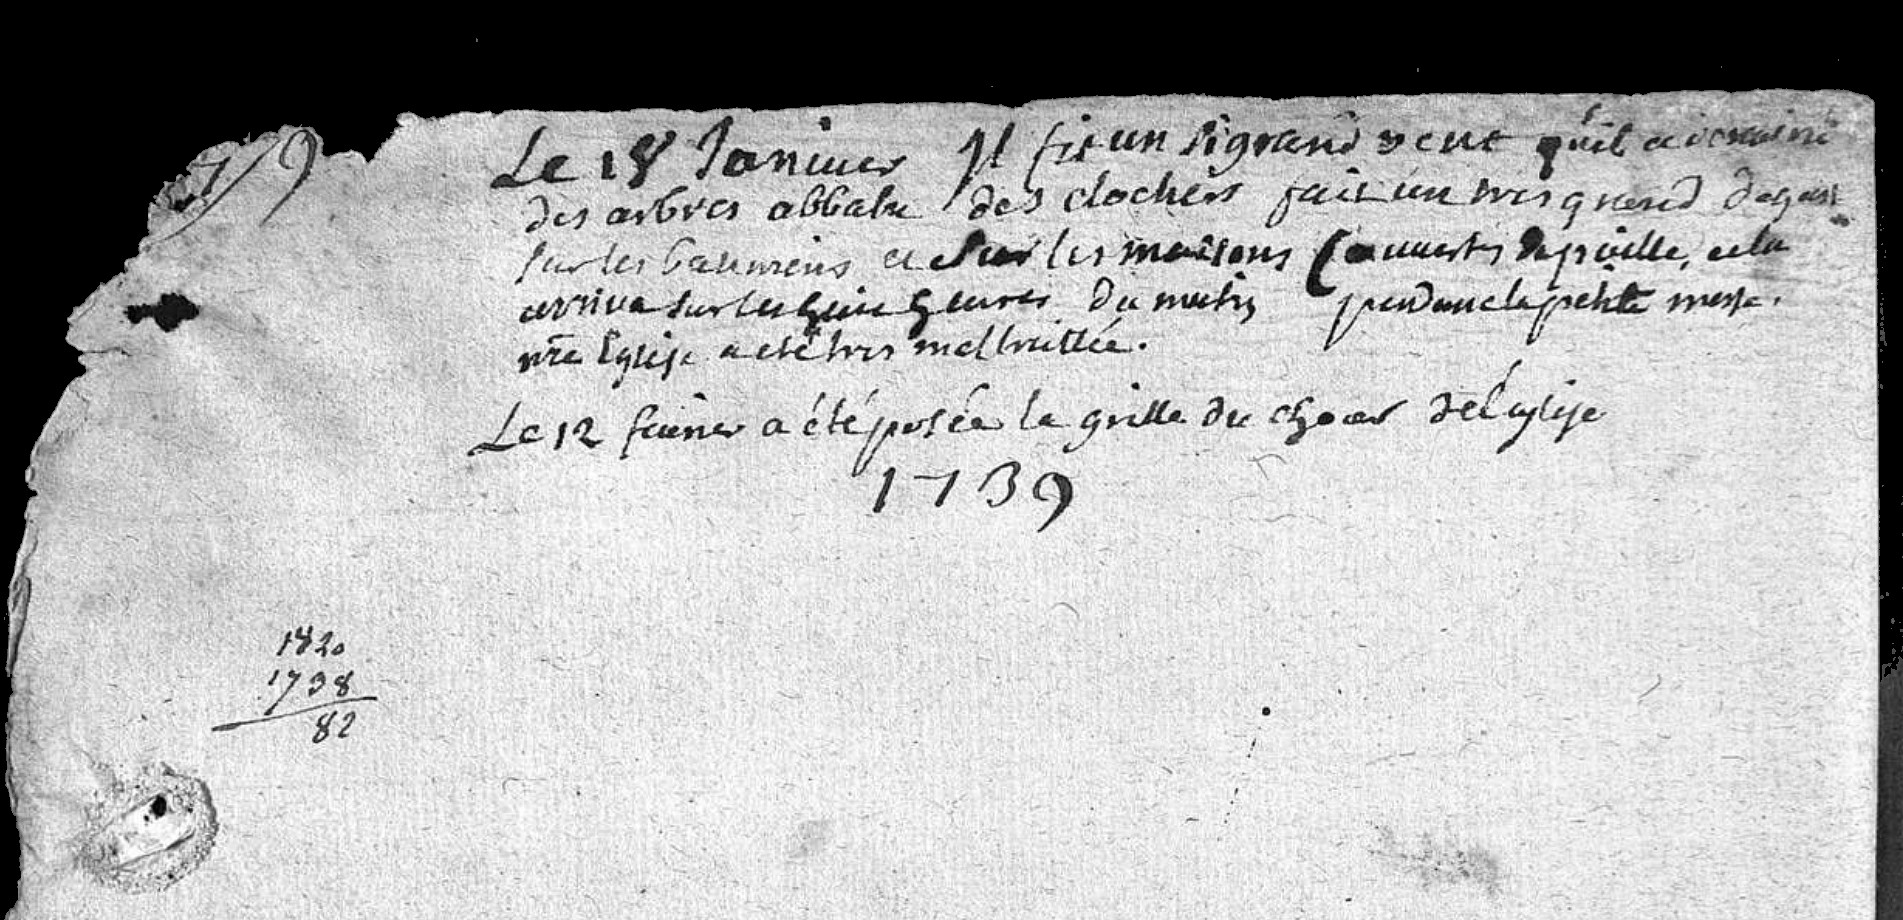 Le 18 Januier Il fit un si grand vent qu'il a deraciné
des arbres abbatu des clochers fait un tres grand degast
sur les batimens et sur les maisons couuerts de paille, cela
arriva sur les huit heures du matin pendant la petite messe.
nre Eglise a eté tres maltraittée.
Le 12 feurier a été posée la grille du choeur de l'Eglise
1739
1820
1738
82